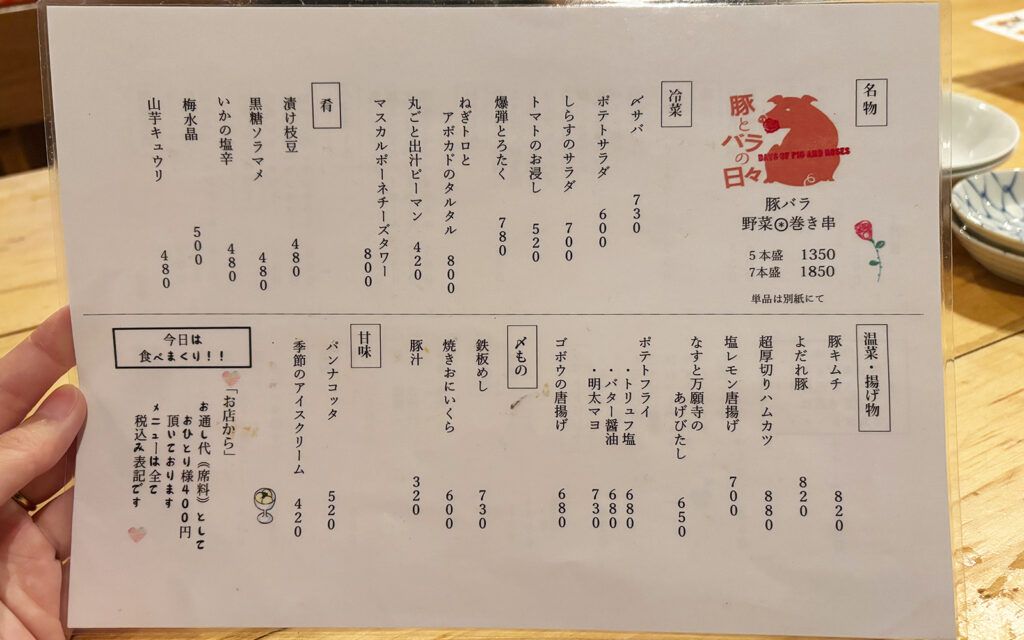 名物
豚と
バラ
の
日々
DAYS OF PIG AND ROSES
豚バラ
野菜巻き串
5本盛 1350
7本盛 1850
単品は別紙にて
冷菜
〆サバ 730
ポテトサラダ 600
しらすのサラダ 700
トマトのお浸し 520
爆弾とろたく 780
ねぎトロと
アボカドのタルタル 800
丸ごと出汁ピーマン 420
マスカルポーネチーズタワー 800
肴
漬け枝豆 480
黒糖ソラマメ 480
いかの塩辛 480
梅水晶 500
山芋キュウリ 480
温菜・揚げ物
豚キムチ 820
よだれ豚 820
超厚切りハムカツ 880
塩レモン唐揚げ 700
なすと万願寺の
あげびたし 650
ポテトフライ
・トリュフ塩 680
・バター醤油 680
・明太マヨ 730
ゴボウの唐揚げ 680
〆もの
鉄板めし 730
焼きおにいくら 600
豚汁 320
甘味
パンナコッタ 520
季節のアイスクリーム 420
今日は
食べまくり！！
「お店から」
お通し代《席料》として
おひとり様400円
頂いております
メニューは全て
税込み表記です